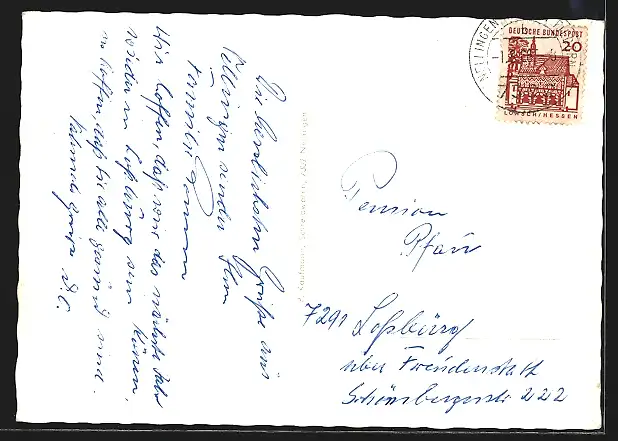 Die herzlichsten Grüße aus
Nellingen sendet Ihnen
Familie
Wir hoffen, daß wir das nächste Jahr
wieder in Loßburg sein können,
u. hoffen, daß Sie alle gesund sind.
DEUTSCHE BUNDESPOST
20
LORSCH/HESSEN
NELLINGEN
Pension
Pfau
7291 Loßburg
über Freudenstadt
Schömbergerstr 222